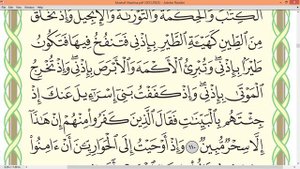 Mushaf Madina.pdf (SECURED) - Adobe Reader
ٱلْكِتَٰبَ وَٱلْحِكْمَةَ وَٱلتَّوْرَىٰةَ وَٱلْإِنجِيلَ وَإِذْ تَخْلُقُ
مِنَ ٱلطِّينِ كَهَيْـَٔةِ ٱلطَّيْرِ بِإِذْنِى فَتَنفُخُ فِيهَا فَتَكُونُ
طَيْرًۢا بِإِذْنِى وَتُبْرِئُ ٱلْأَكْمَهَ وَٱلْأَبْرَصَ بِإِذْنِى وَإِذْ تُخْرِجُ
ٱلْمَوْتَىٰ بِإِذْنِى وَإِذْ كَفَفْتُ بَنِىٓ إِسْرَٰٓءِيلَ عَنكَ إِذْ
جِئْتَهُم بِٱلْبَيِّنَٰتِ فَقَالَ ٱلَّذِينَ كَفَرُوا۟ مِنْهُمْ إِنْ هَٰذَآ
إِلَّا سِحْرٌ مُّبِينٌ ١١٠ وَإِذْ أَوْحَيْتُ إِلَى ٱلْحَوَارِيِّـۧنَ أَنْ ءَامِنُوا۟